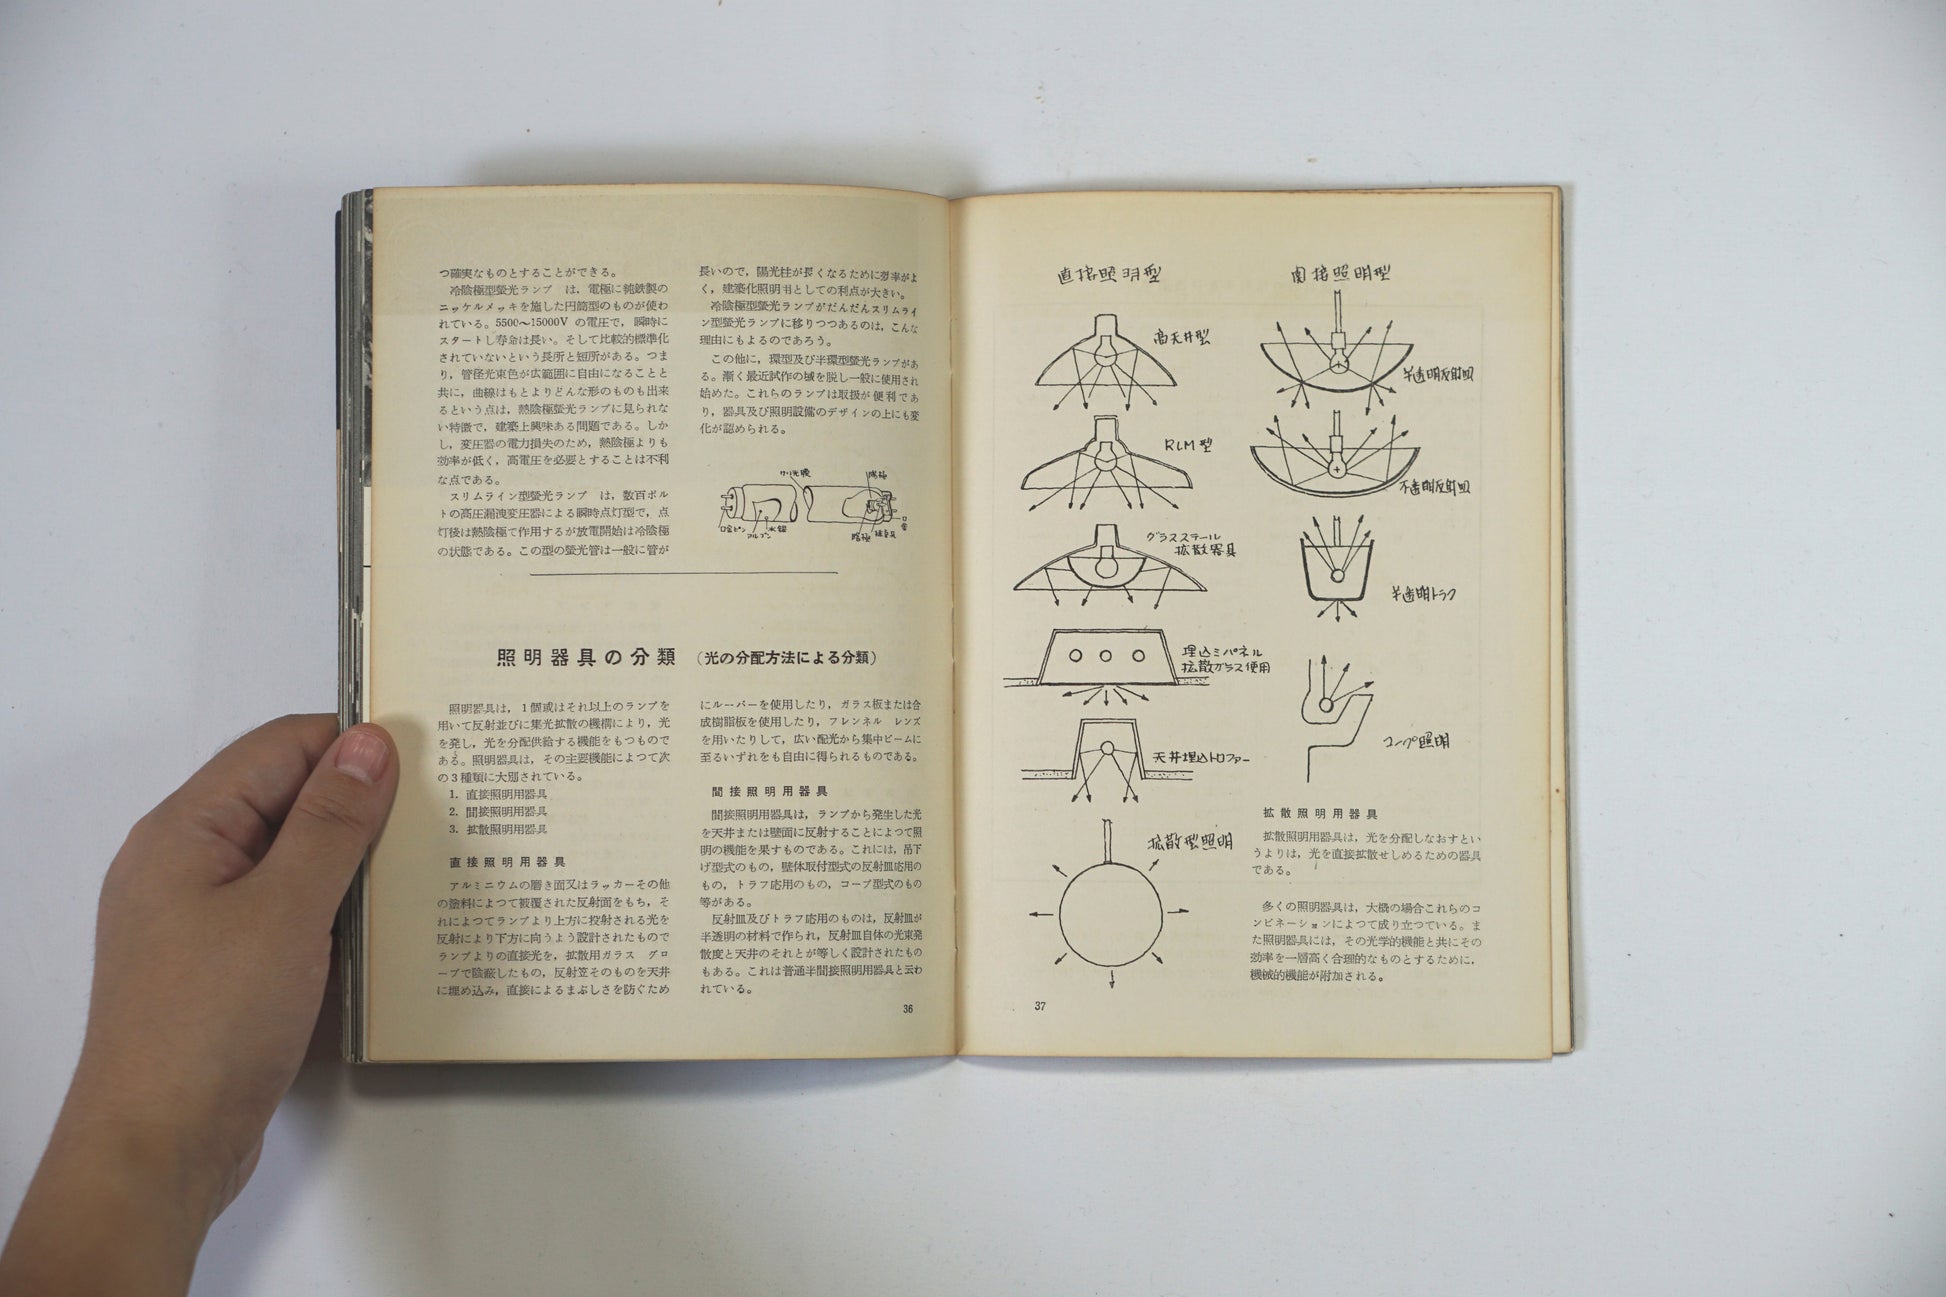 つ確実なものとすることができる。
冷陰極型螢光ランプ は、電極に純鉄製の
ニッケルメッキを施した円筒型のものが使わ
れている。5500〜15000V の電圧で，瞬時に
スタートし寿命は長い。そして比較的標準化
されていないという長所と短所がある。つま
り，管径光束色が広範囲に自由になることと
共に，曲線はもとよりどんな形のものも出来
るという点は，熱陰極螢光ランプに見られな
い特徴で，建築上興味ある問題である。しか
し，変圧器の電力損失のため，熱陰極よりも
効率が低く，高電圧を必要とすることは不利
な点である。
スリムライン型螢光ランプ は，数百ボル
トの高圧漏洩変圧器による瞬時点灯型で，点
灯後は熱陰極で作用するが放電開始は冷陰極
の状態である。この型の螢光管は一般に管が
長いので，陽光柱が長くなるために効率がよ
く，建築化照明用としての利点が大きい。
冷陰極型螢光ランプがだんだんスリムライ
ン型螢光ランプに移りつつあるのは，こんな
理由にもよるのであろう。
この他に，環型及び半環型螢光ランプがあ
る。漸く最近試作の域を脱し一般に使用され
始めた。これらのランプは取扱が便利であ
り，器具及び照明設備のデザインの上にも変
化が認められる。
ケイ光膜
陽極
口金ピン
アルゴン
水銀
陰極
口金
照明器具の分類 （光の分配方法による分類）
照明器具は，1個或はそれ以上のランプを
用いて反射並びに集光拡散の機構により，光
を発し，光を分配供給する機能をもつもので
ある。照明器具は，その主要機能によつて次
の3種類に大別されている。
1. 直接照明用器具
2. 間接照明用器具
3. 拡散照明用器具
直接照明用器具
アルミニウムの磨き面又はラッカーその他
の塗料によつて被覆された反射面をもち，そ
れによつてランプより上方に投射される光を
反射により下方に向うよう設計されたもので
ランプよりの直接光を，拡散用ガラス グロ
ーブで陰蔽したもの，反射笠そのものを天井
に埋め込み，直接によるまぶしさを防ぐため
にルーバーを使用したり，ガラス板または合
成樹脂板を使用したり，フレンネル レンズ
を用いたりして，広い配光から集中ビームに
至るいずれをも自由に得られるものである。
間接照明用器具
間接照明用器具は，ランプから発生した光
を天井または壁面に反射することによつて照
明の機能を果すものである。これには，吊下
げ型式のもの，壁体取付型式の反射皿応用の
もの，トラフ応用のもの，コーブ型式のもの
等がある。
反射皿及びトラフ応用のものは，反射皿が
半透明の材料で作られ，反射皿自体の光束発
散度と天井のそれとが等しく設計されたもの
もある。これは普通半間接照明用器具と云わ
れている。
36
直接照明型
高天井型
RLM型
グラススチール
拡散器具
埋込ミパネル
拡散ガラス使用
天井埋込トロファー
拡散型照明
37
間接照明型
半透明反射皿
不透明反射皿
半透明トラフ
コーブ照明
拡散照明用器具
拡散照明用器具は，光を分配しなおすとい
うよりは，光を直接拡散せしめるための器具
である。
多くの照明器具は，大概の場合これらのコ
ンビネーションによつて成り立つている。ま
た照明器具には，その光学的機能と共にその
効率を一層高く合理的なものとするために，
機械的機能が附加される。